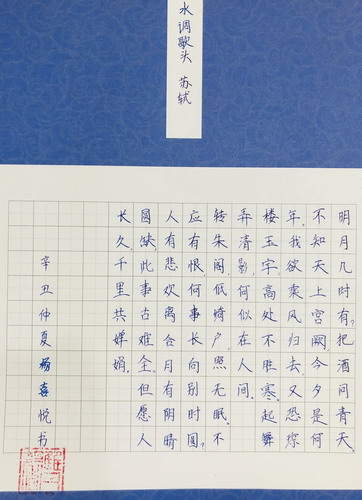 水调歌头 苏轼
明月几时有?把酒问青天。
不知天上宫阙,今夕是何
年。我欲乘风归去,又恐琼
楼玉宇,高处不胜寒。起舞
弄清影,何似在人间。
转朱阁,低绮户,照无眠。不
应有恨,何事长向别时圆?
人有悲欢离合,月有阴晴
圆缺,此事古难全。但愿人
长久,千里共婵娟。
辛丑仲夏 喜悦书